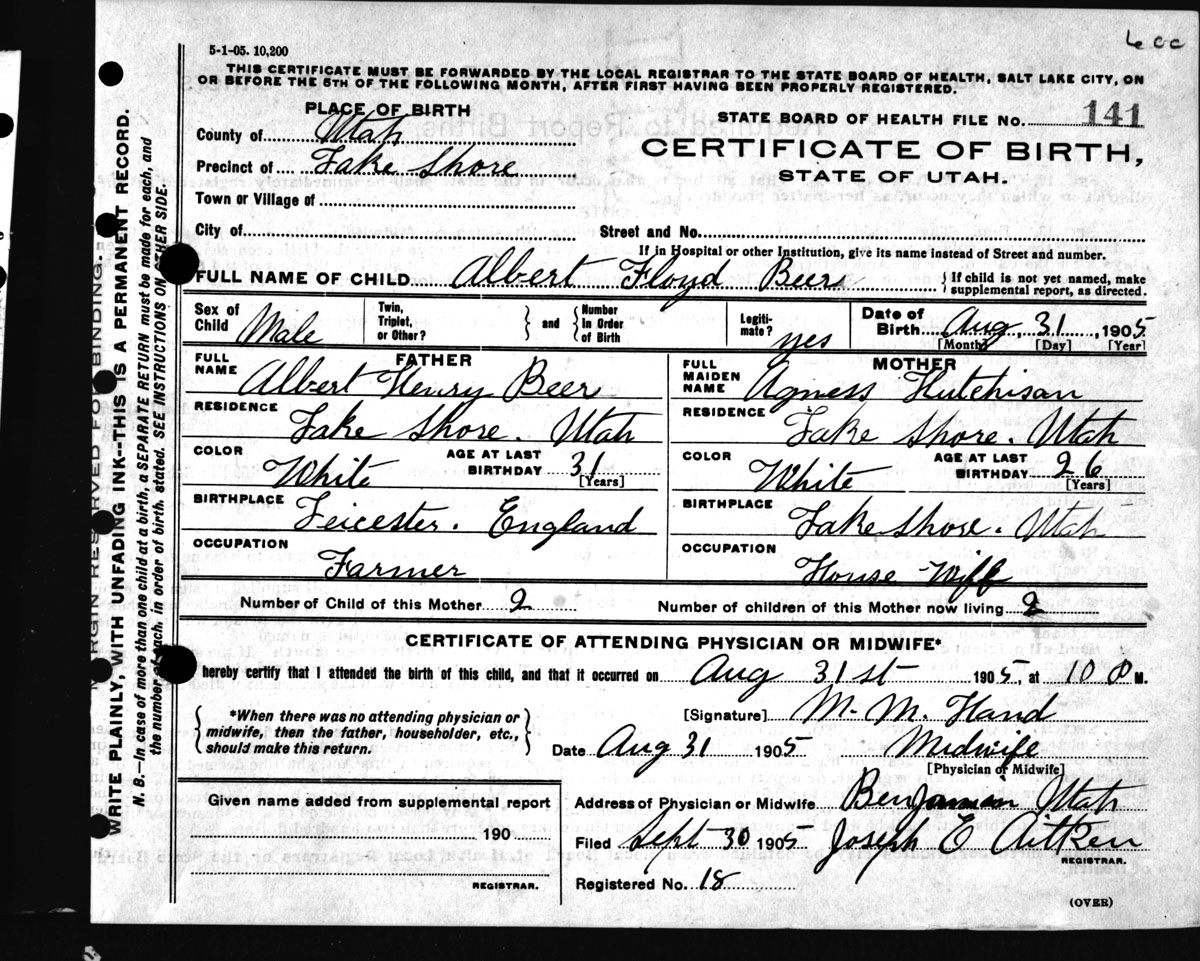 6cc
5-1-05. 10,200
THIS CERTIFICATE MUST BE FORWARDED BY THE LOCAL REGISTRAR TO THE STATE BOARD OF HEALTH, SALT LAKE CITY, ON
OR BEFORE THE 5TH OF THE FOLLOWING MONTH, AFTER FIRST HAVING BEEN PROPERLY REGISTERED.
PLACE OF BIRTH
County of Utah
Precinct of Lake Shore
Town or Village of
City of
STATE BOARD OF HEALTH FILE NO. 141
CERTIFICATE OF BIRTH,
STATE OF UTAH.
Street and No.
If in Hospital or other Institution, give its name instead of Street and number.
FULL NAME OF CHILD Albert Floyd Beers
{ If child is not yet named, make
supplemental report, as directed.
Sex of Child Male
Twin, Triplet, or Other? } and { Number In Order of Birth
Legiti-mate? yes
Date of Birth Aug. 31, 1905
[Month] [Day] [Year]
FATHER
FULL NAME Albert Henry Beer
RESIDENCE Lake Shore. Utah
COLOR White AGE AT LAST BIRTHDAY 31
[Years]
BIRTHPLACE Leicester. England
OCCUPATION Farmer
MOTHER
FULL MAIDEN NAME Agness Hutchison
RESIDENCE Lake Shore. Utah
COLOR White AGE AT LAST BIRTHDAY 26
[Years]
BIRTHPLACE Lake Shore. Utah
OCCUPATION House Wife
Number of Child of this Mother 2 Number of children of this Mother now living 2
CERTIFICATE OF ATTENDING PHYSICIAN OR MIDWIFE*
hereby certify that I attended the birth of this child, and that it occurred on Aug 31st 1905, at 10 P M.
{ *When there was no attending physician or
midwife, then the father, householder, etc.,
should make this return. }
[Signature] M. M. Hand
Date Aug 31 1905 Midwife
[Physician or Midwife]
Address of Physician or Midwife Benjamin Utah
Filed Sept 30 1905 Joseph E Aitken
REGISTRAR.
Registered No. 18
(OVER)
Given name added from supplemental report
190
REGISTRAR.
WRITE PLAINLY, WITH UNFADING INK--THIS IS A PERMANENT RECORD.
N. B.—In case of more than one child at a birth, a SEPARATE RETURN must be made for each, and
the number of each, in order of birth stated. SEE INSTRUCTIONS ON OTHER SIDE.